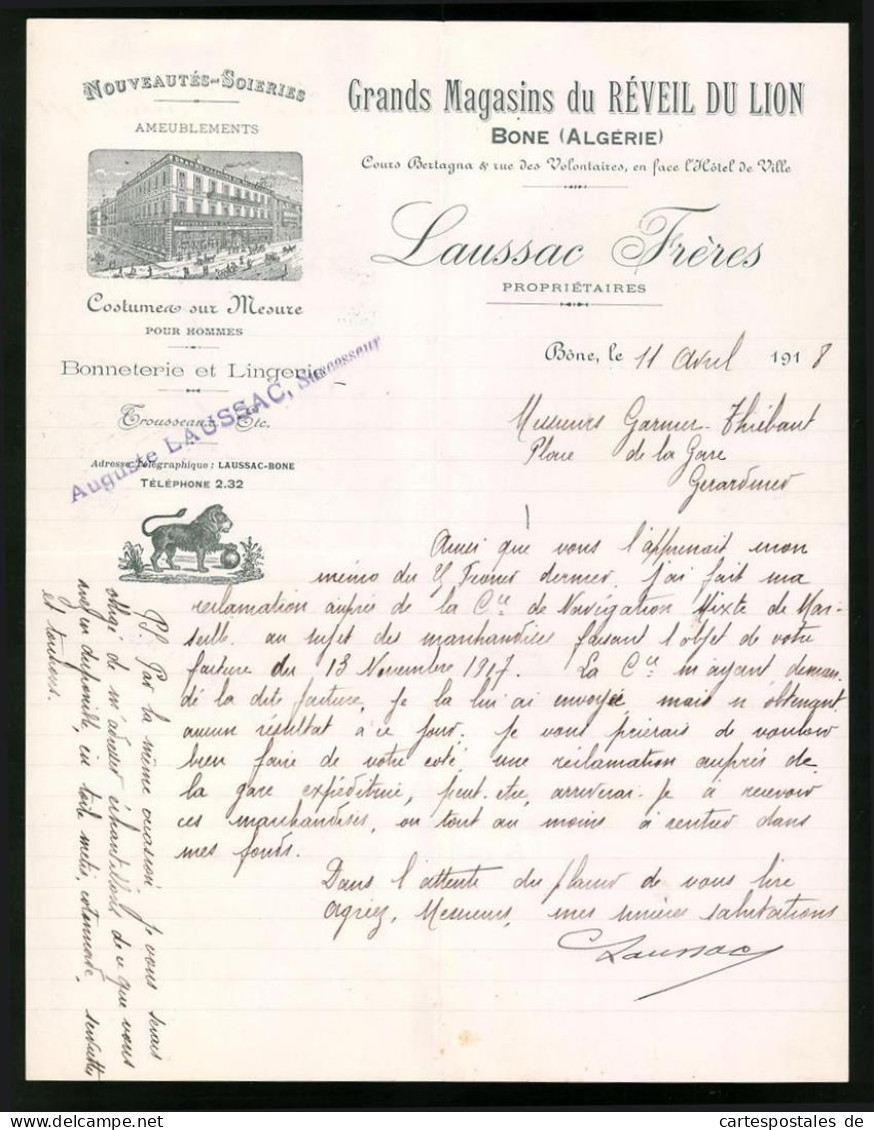 NOUVEAUTÉS-SOIERIES
AMEUBLEMENTS
Costumes sur Mesure
POUR HOMMES
Bonneterie et Lingerie
Trousseaux, Etc.
Auguste LAUSSAC, Successeur
Adresse Télégraphique : LAUSSAC-BONE
TÉLÉPHONE 2.32
Grands Magasins du RÉVEIL DU LION
BONE (ALGÉRIE)
Cours Bertagna & rue des Volontaires, en face l'Hôtel de Ville
Laussac Frères
PROPRIÉTAIRES
Bône, le 11 Avril 1918
Messieurs Garnier-Thiébaut
Place de la Gare
Gerardmer
Ainsi que vous l'apprenait mon
mémo du dernier, j'ai fait ma
réclamation auprès de la Cie de Navigation Mixte de Mar-
seille au sujet des marchandises faisant l'objet de votre
facture du 13 Novembre 1917. La Cie m'ayant deman-
dé la dite facture, je la lui ai envoyée mais n'obtenant
aucun résultat à ce jour. Je vous prierais de vouloir
bien faire de votre coté une réclamation auprès de
la gare expéditrice, peut-etre, arriverai-je à recevoir
ces marchandises, ou tout au moins à rentrer dans
mes fonds.
Dans l'attente du plaisir de vous lire
Agréez, Messieurs, mes sincères salutations
Laussac
PS. Par la même occasion je vous serais
obligé de m'adresser échantillons de ce que vous
avez en disponible, en toile metis, cotonnade, serviettes
et torchons.
www.cartespostales.de
cartespostales de